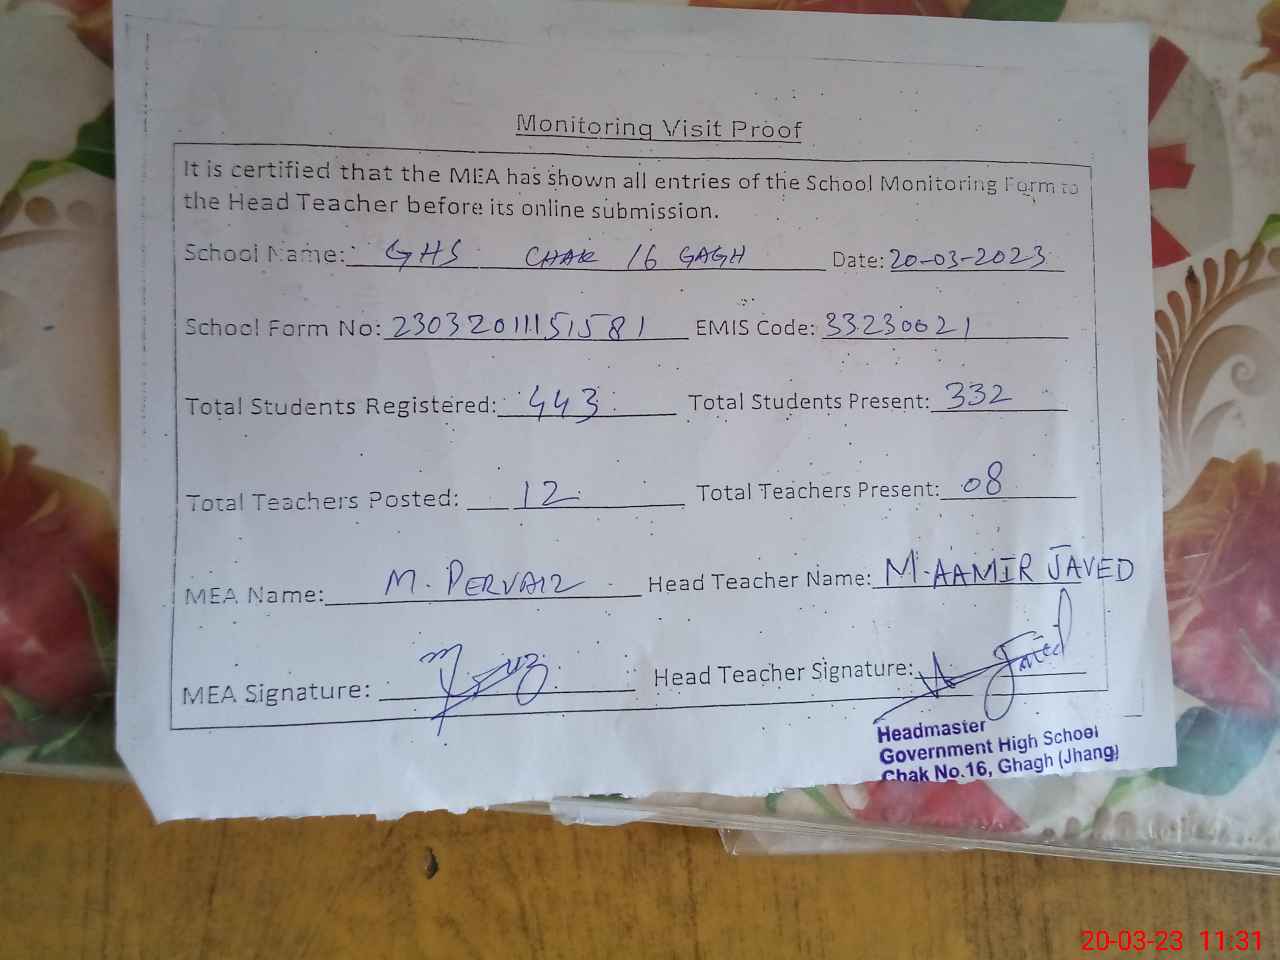 Monitoring Visit Proof
It is certified that the MEA has shown all entries of the School Monitoring Form to
the Head Teacher before its online submission.
School Name: GHS CHAK 16 GAGH Date: 20-03-2023
School Form No: 23032011151581 EMIS Code: 33230021
Total Students Registered: 443 Total Students Present: 332
Total Teachers Posted: 12 Total Teachers Present: 08
MEA Name: M. PERVAIZ Head Teacher Name: M. AAMIR JAVED
MEA Signature: Head Teacher Signature: Javed
Headmaster
Government High School
Chak No.16, Ghagh (Jhang)
20-03-23 11:31